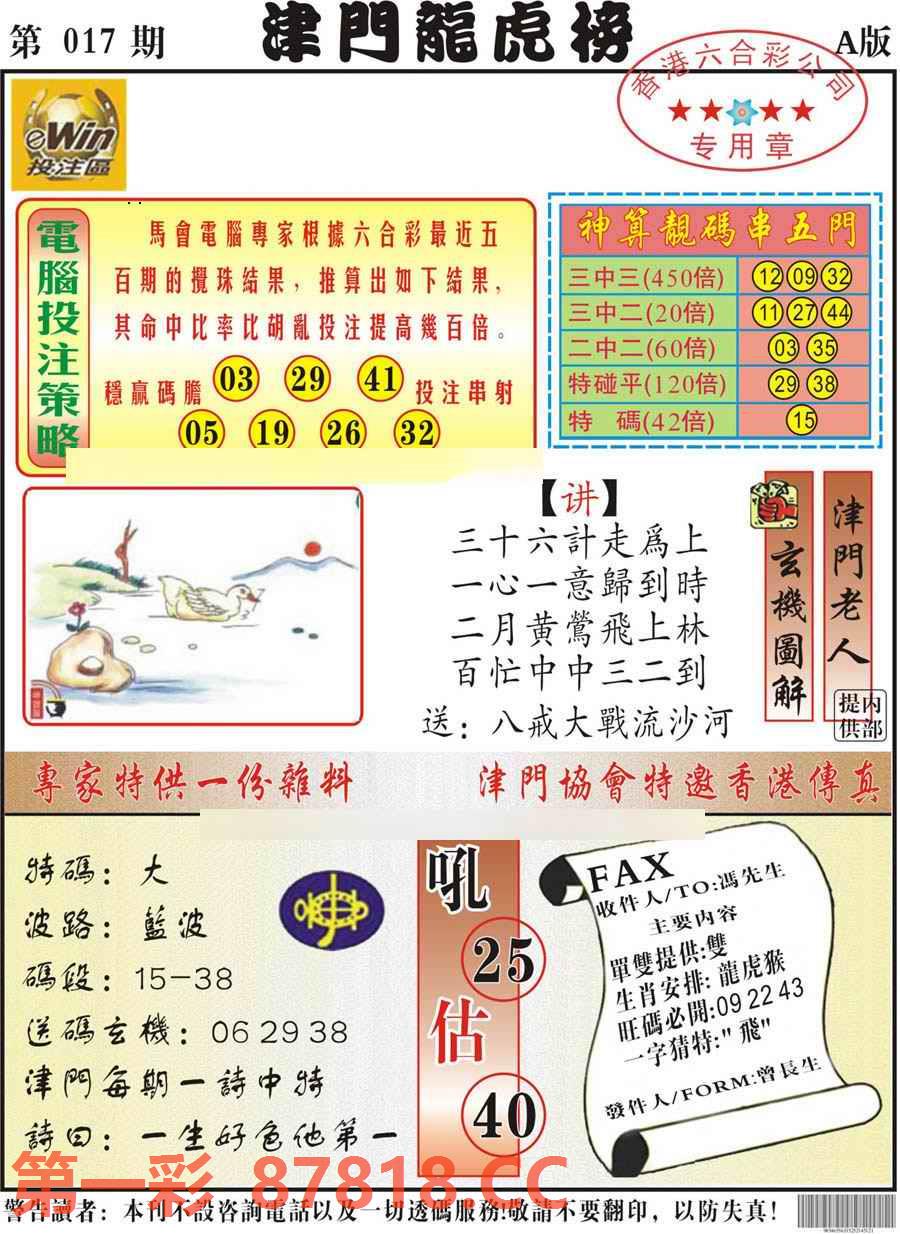 第 017 期
津門龍虎榜
A版
香港六合彩公司
专用章
eWin
投注區
電腦投注策略
馬會電腦專家根據六合彩最近五
百期的攪珠結果，推算出如下結果，
其命中比率比胡亂投注提高幾百倍。
穩贏碼膽 03 29 41 投注串射
05 19 26 32
神算靚碼串五門
三中三(450倍) 12 09 32
三中二(20倍) 11 27 44
二中二(60倍) 03 35
特碰平(120倍) 29 38
特 碼(42倍) 15
【讲】
三十六計走爲上
一心一意歸到時
二月黄鶯飛上林
百忙中中三二到
送：八戒大戰流沙河
玄機圖解
津門老人
内部提供
專家特供一份雜料
津門協會特邀香港傳真
特碼：大
波路：藍波
碼段：15-38
送碼玄機：06 29 38
津門每期一詩中特
詩曰：一生好色他第一
吼
25
估
40
FAX
收件人/TO:馮先生
主要内容
單雙提供:雙
生肖安排:龍虎猴
旺碼必開:09 22 43
一字猜特:"飛"
發件人/FORM:曾長生
第一彩 87818.CC
警告讀者：本刊不設咨詢電話以及一切透碼服務!敬請不要翻印，以防失真!